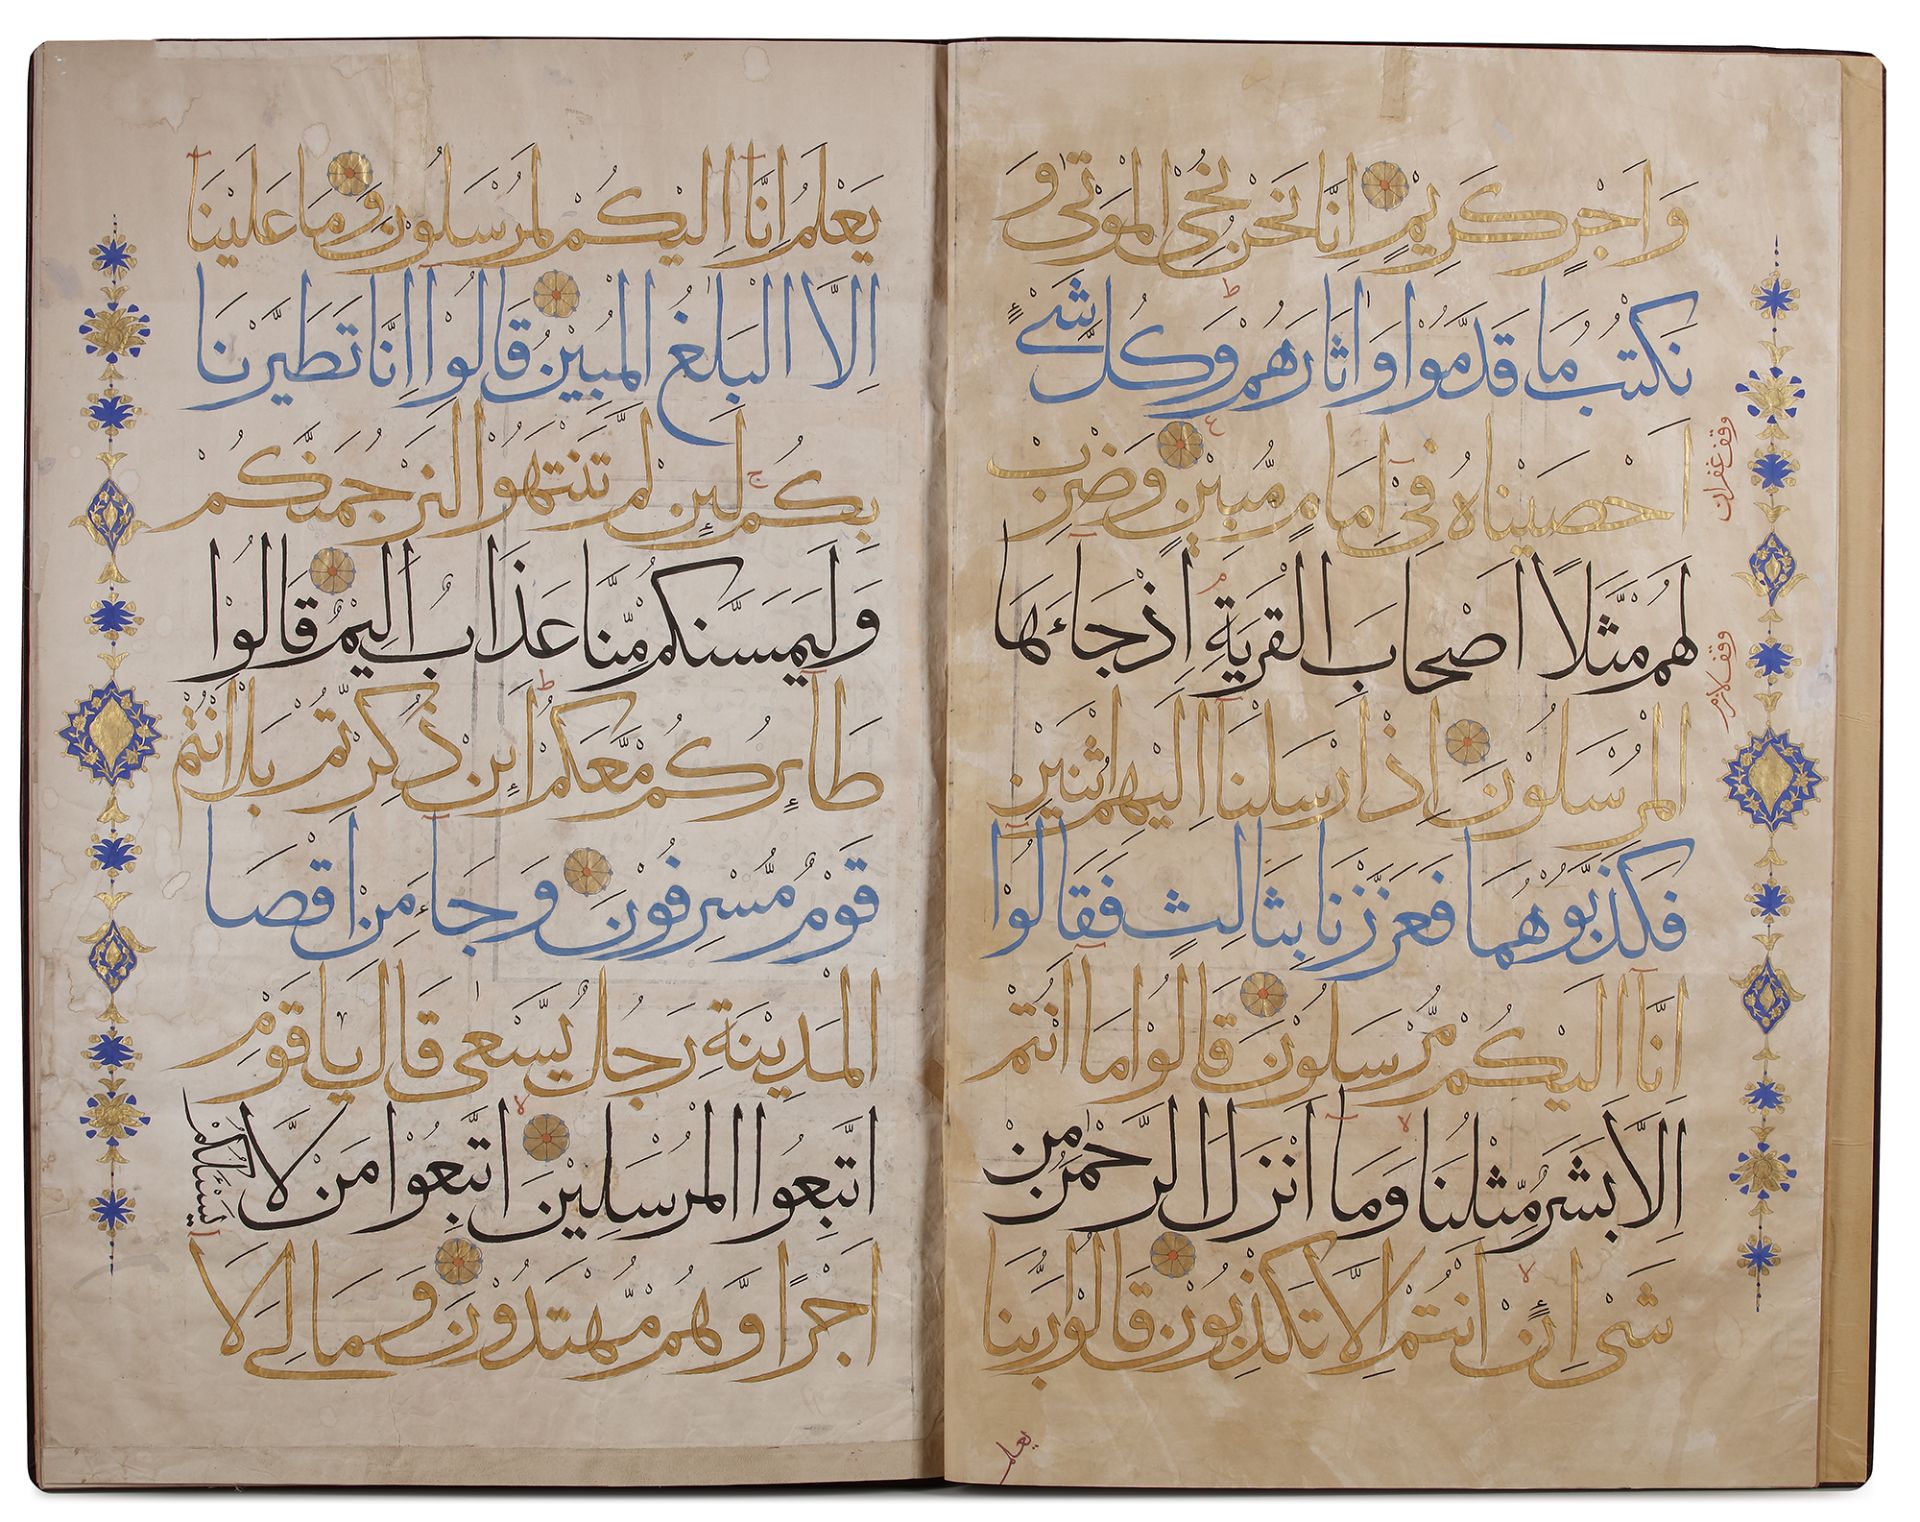 وَاَجْرٍ كَرِيْمٍ اِنَّا نَحْنُ نُحْىِ الْمَوْتٰى وَ
نَكْتُبُ مَا قَدَّمُوْا وَاٰثَارَهُمْ وَكُلَّ شَىْءٍ
اَحْصَيْنَاهُ فِىْ اِمَامٍ مُّبِيْنٍ وَضْرِبْ
وقف غفران
لَهُمْ مَّثَلًا اَصْحَابَ الْقَرْيَةِ اِذْ جَاءَهَا
وقف لازم
الْمُرْسَلُوْنَ اِذْ اَرْسَلْنَا اِلَيْهِمُ اثْنَيْنِ
فَكَذَّبُوْهُمَا فَعَزَّزْنَا بِثَالِثٍ فَقَالُوْا
اِنَّا اِلَيْكُمْ مُّرْسَلُوْنَ قَالُوْا مَا اَنْتُمْ
اِلَّا بَشَرٌ مِّثْلُنَا وَمَا اَنْزَلَ الرَّحْمٰنُ مِنْ
شَىْءٍ اِنْ اَنْتُمْ اِلَّا تَكْذِبُوْنَ قَالُوْا رَبُّنَا
يعلم
يَعْلَمُ اِنَّا اِلَيْكُمْ لَمُرْسَلُوْنَ وَمَا عَلَيْنَا
اِلَّا الْبَلٰغُ الْمُبِيْنُ قَالُوْا اِنَّا تَطَيَّرْنَا
بِكُمْ لَئِنْ لَّمْ تَنْتَهُوْا لَنَرْجُمَنَّكُمْ
وَلَيَمَسَّنَّكُمْ مِّنَّا عَذَابٌ اَلِيْمٌ قَالُوْا
طَائِرُكُمْ مَّعَكُمْ اَئِنْ ذُكِّرْتُمْ بَلْ اَنْتُمْ
قَوْمٌ مُّسْرِفُوْنَ وَجَاءَ مِنْ اَقْصَا
الْمَدِيْنَةِ رَجُلٌ يَّسْعٰى قَالَ يَا قَوْمِ
اتَّبِعُوا الْمُرْسَلِيْنَ اتَّبِعُوْا مَنْ لَّا يَسْئَلُكُمْ
اَجْرًا وَّهُمْ مُّهْتَدُوْنَ وَمَا لِىَ لَا